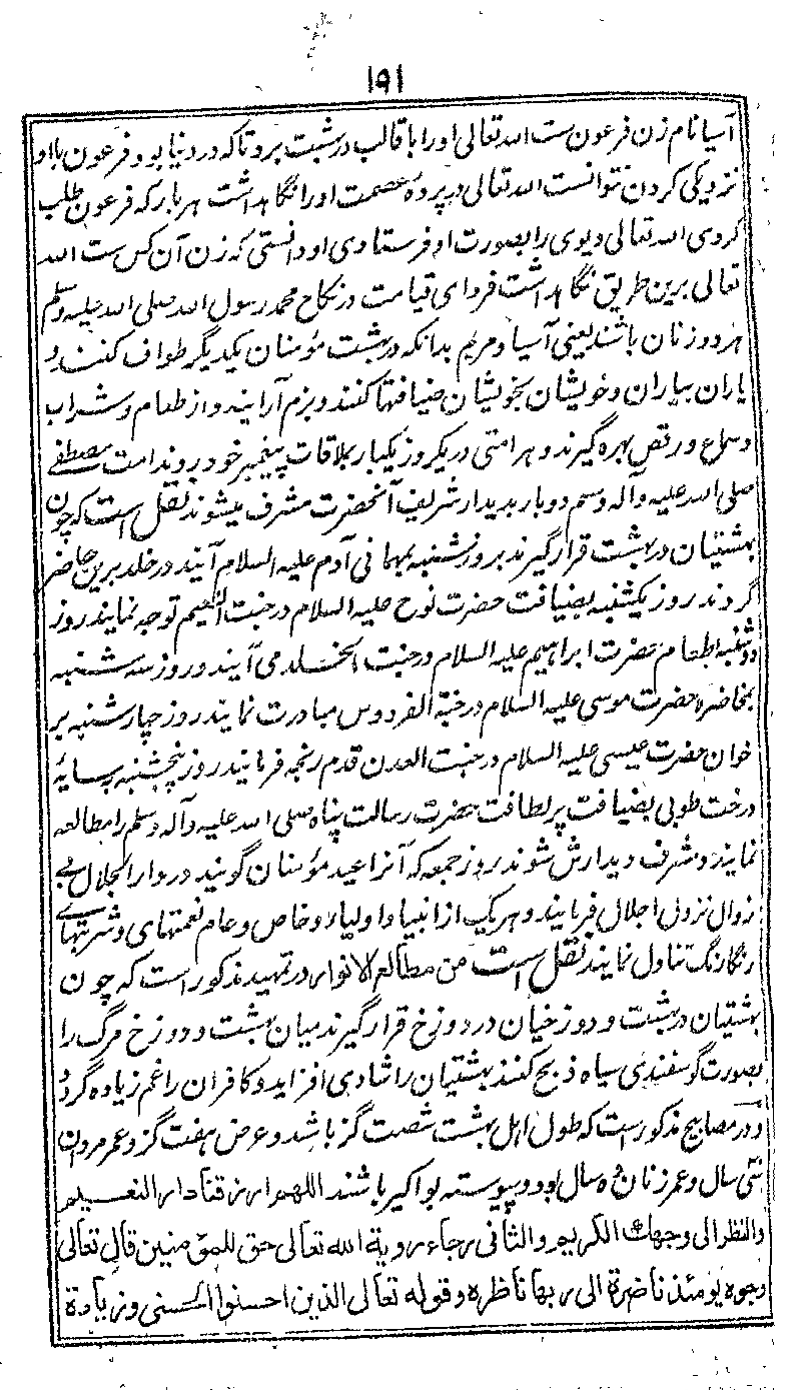 ۱۹۱
آسیا نام زن فرعون ست الله تعالی اورا با قالب در بهشت برد تا که در دنیا بود فرعون با او
نزدیکی کردن نتوانست الله تعالی در پرده عصمت اورا نگاهداشت هر بار که فرعون طلب
کردی الله تعالی دیوی را بصورت او فرستادی او دانستی که زن آن کس ست الله
تعالی برین طریق نگاهداشت فردای قیامت در نکاح محمد رسول الله صلی الله علیه وسلم
هر دو زنان باشند یعنی آسیا و مریم بدانکه در بهشت مؤمنان یکدیگر طواف کنند و
یاران بیاران و خویشان بخویشان ضیافتها کنند و بزم آرایند و از طعام و شراب
و سماع و رقص بهره گیرند و هر امتی در یکروز یکبار بملاقات پیغمبر خود روند امت مصطفے
صلی الله علیه وآله وسم دوبار بدیدار شریف آنحضرت مشرف میشوند نقل است که چون
بهشتیان در بهشت قرار گیرند بروز شنبه بمهمانی آدم علیه السلام آیند در خلد برین حاضر
گردند روز یکشنبه بضیافت حضرت نوح علیه السلام در جنت النعیم توجه نمایند روز
دوشنبه اطعام حضرت ابراهیم علیه السلام در جنت الخلد می آیند و روز سه شنبه
بمخاضره حضرت موسی علیه السلام در جنة الفردوس مبادرت نمایند روز چهارشنبه بر
خوان حضرت عیسی علیه السلام در جنت العدن قدم رنجه فرمایند روز پنجشنبه بسایهٔ
درخت طوبی بضیافت پر لطافت حضرت رسالت پناه صلی الله علیه وآله وسلم را مطالعه
نمایند و مشرف دیدارش شوند روز جمعه که آنرا عید مؤمنان گویند در دار الجلال بے
زوال نزول اجلال فرمایند و هر یک از انبیا و اولیاء و خاص و عام نعمتهای و شربتهاے
رنگارنگ تناول نمایند نقل است من مطالع الانوار در تمهید مذکور است که چون
بهشتیان در بهشت و دوزخیان در دوزخ قرار گیرند میان بهشت و دوزخ مرگ را
بصورت گوسفندی سیاه ذبح کنند بهشتیان را شادی افزاید و کافران را غم زیاده گردد
و در مصابیح مذکور است که طول اهل بهشت شصت گز باشد و عرض هفت گز و عمر مردان
سی سال و عمر زنان ده سال بود و پیوسته بواکیر باشند اللهم ارزقنا دار النعیم
والنظر الی وجهك الکریم والثانی رجاء رویة الله تعالی حق للمؤمنین قال تعالی
وجوه یومئذ ناضرة الی ربها ناظره وقوله تعالی الذین احسنوا الحسنی وزیادة